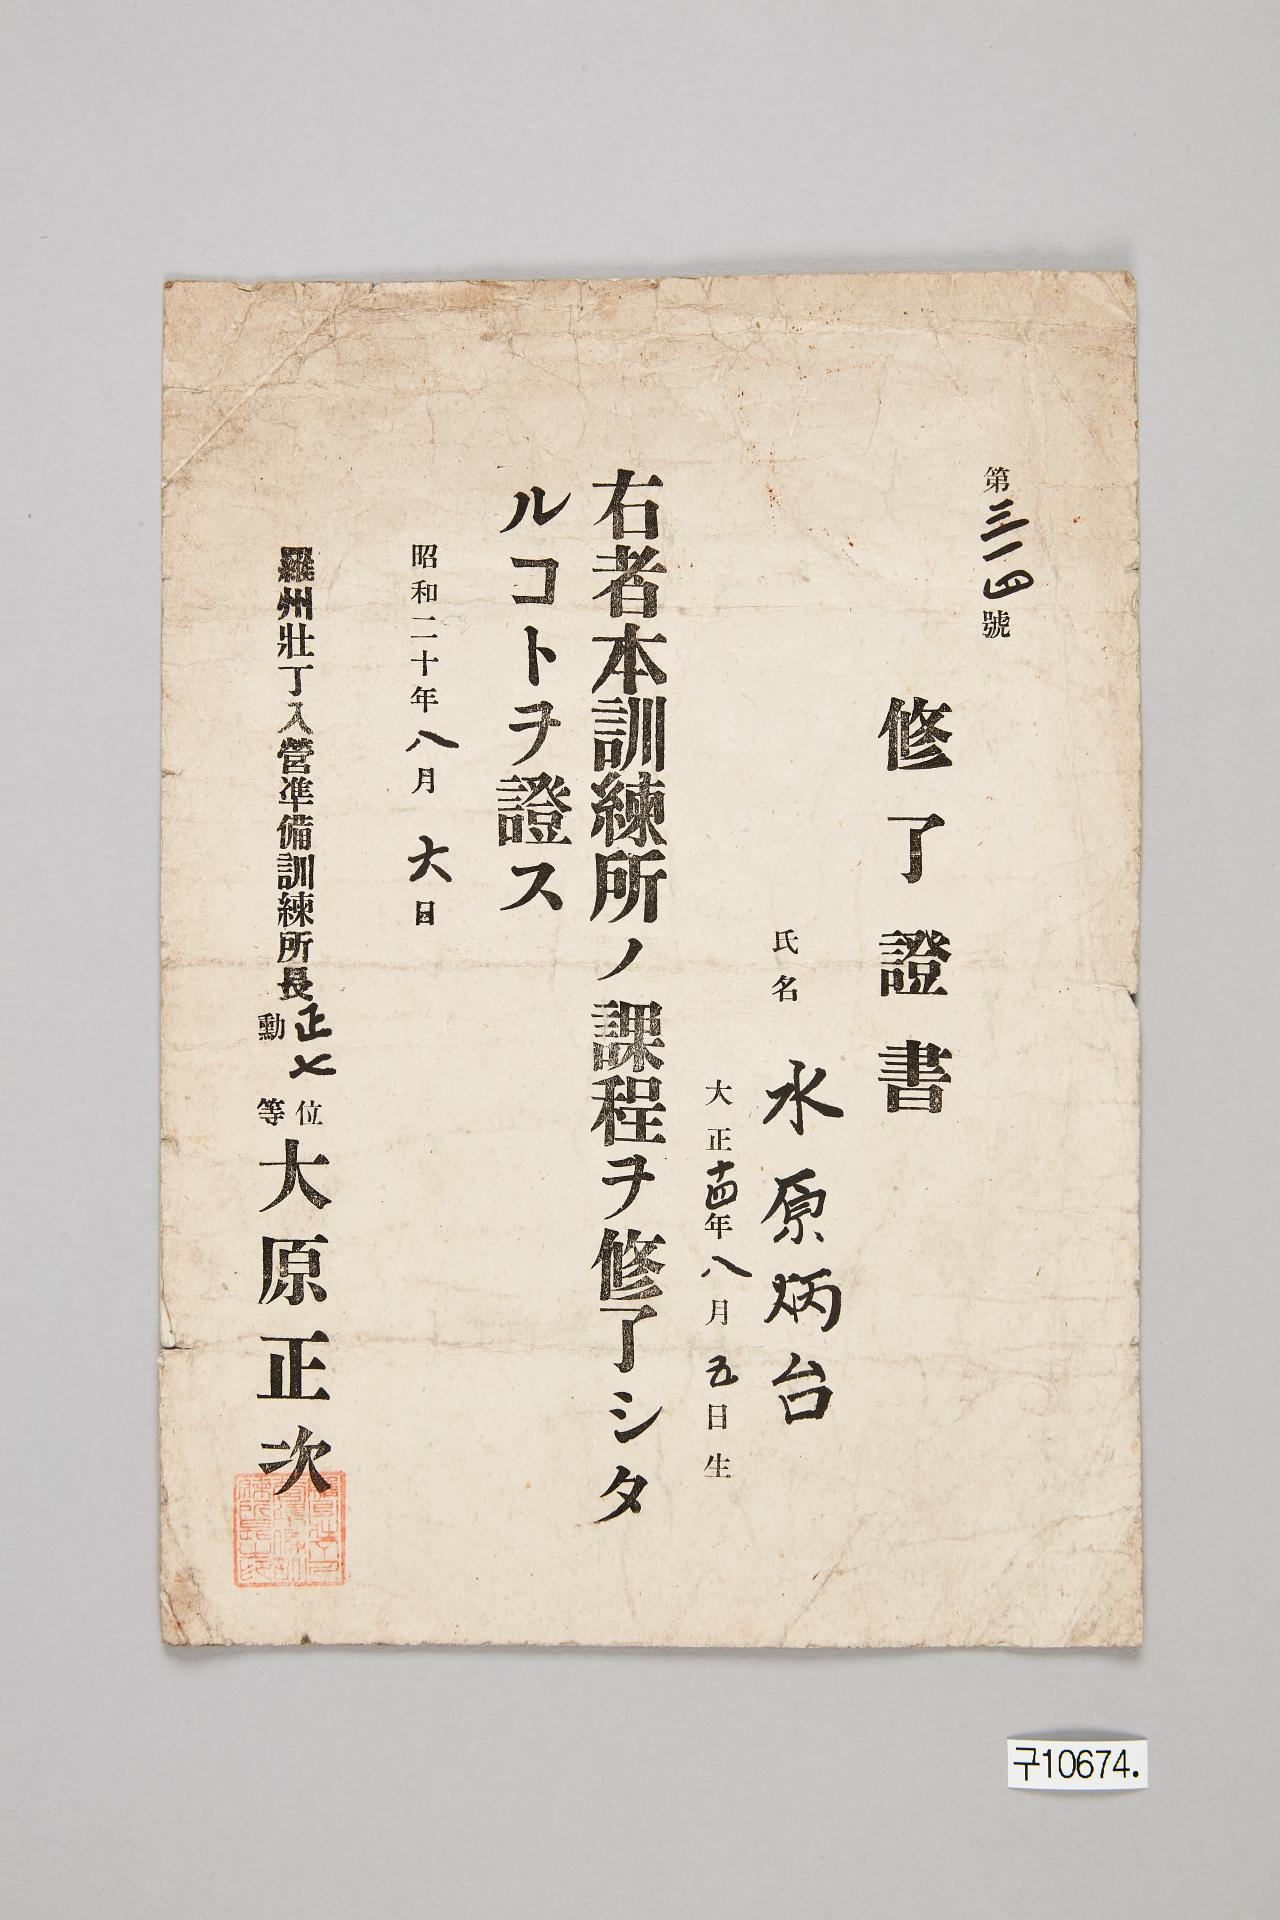 第三一四號
修了證書
氏名 水原炳台
大正十四年八月五日生
右者本訓練所ノ課程ヲ修了シタ
ルコトヲ證ス
昭和二十年八月六日
羅州壯丁入營準備訓練所長 正七位 勳 等 大原正次
구10674.